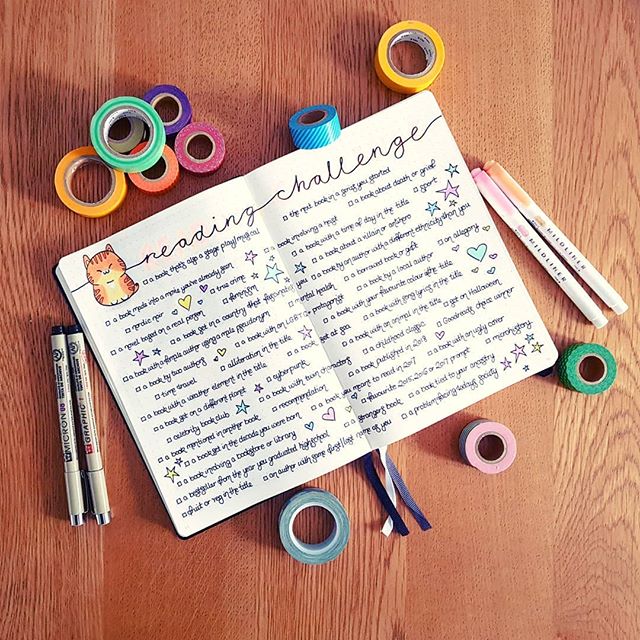 reading challenge
a book that's also a stage play/musical
a book made into a movie you've already seen
true crime
nordic noir
feminism
a novel based on a real person
a book set in a country that fascinates you
a book with a female author using a male pseudonym
a book by two authors
alliteration in the title
time travel
a book with a weather element in the title
cyberpunk
a book set on a different planet
a book with twin characters
celebrity book club
recommendation
a book mentioned in another book
a book set in the decade you were born
a book involving a bookstore or library
a bestseller from the year you graduated highschool
fruit or veg in the title
an author with same first/last name of you
the next book in a series you started
a book about death or grief
a book involving a heist
sport
a book with a time of day in the title
a book about a villain or antihero
a book by an author with a different ethnicity than you
mental health
a borrowed book or gift
an allegory
a book with an LGBTQ+ protagonist
a book by a local author
a book with your favourite colour in the title
a book set at sea
a book with song lyrics in the title
a book with an animal in the title
set on Halloween
childhood classic
Goodreads choice winner
a book published in 2018
a book with an ugly cover
a book you meant to read in 2017
favourite 2015, 2016 or 2017 prompt
microhistory
a strangers book
a book tied to your ancestry
a problem facing today's society
MICRON
GRAPHIC 1
MILDLINER
MILDLINER